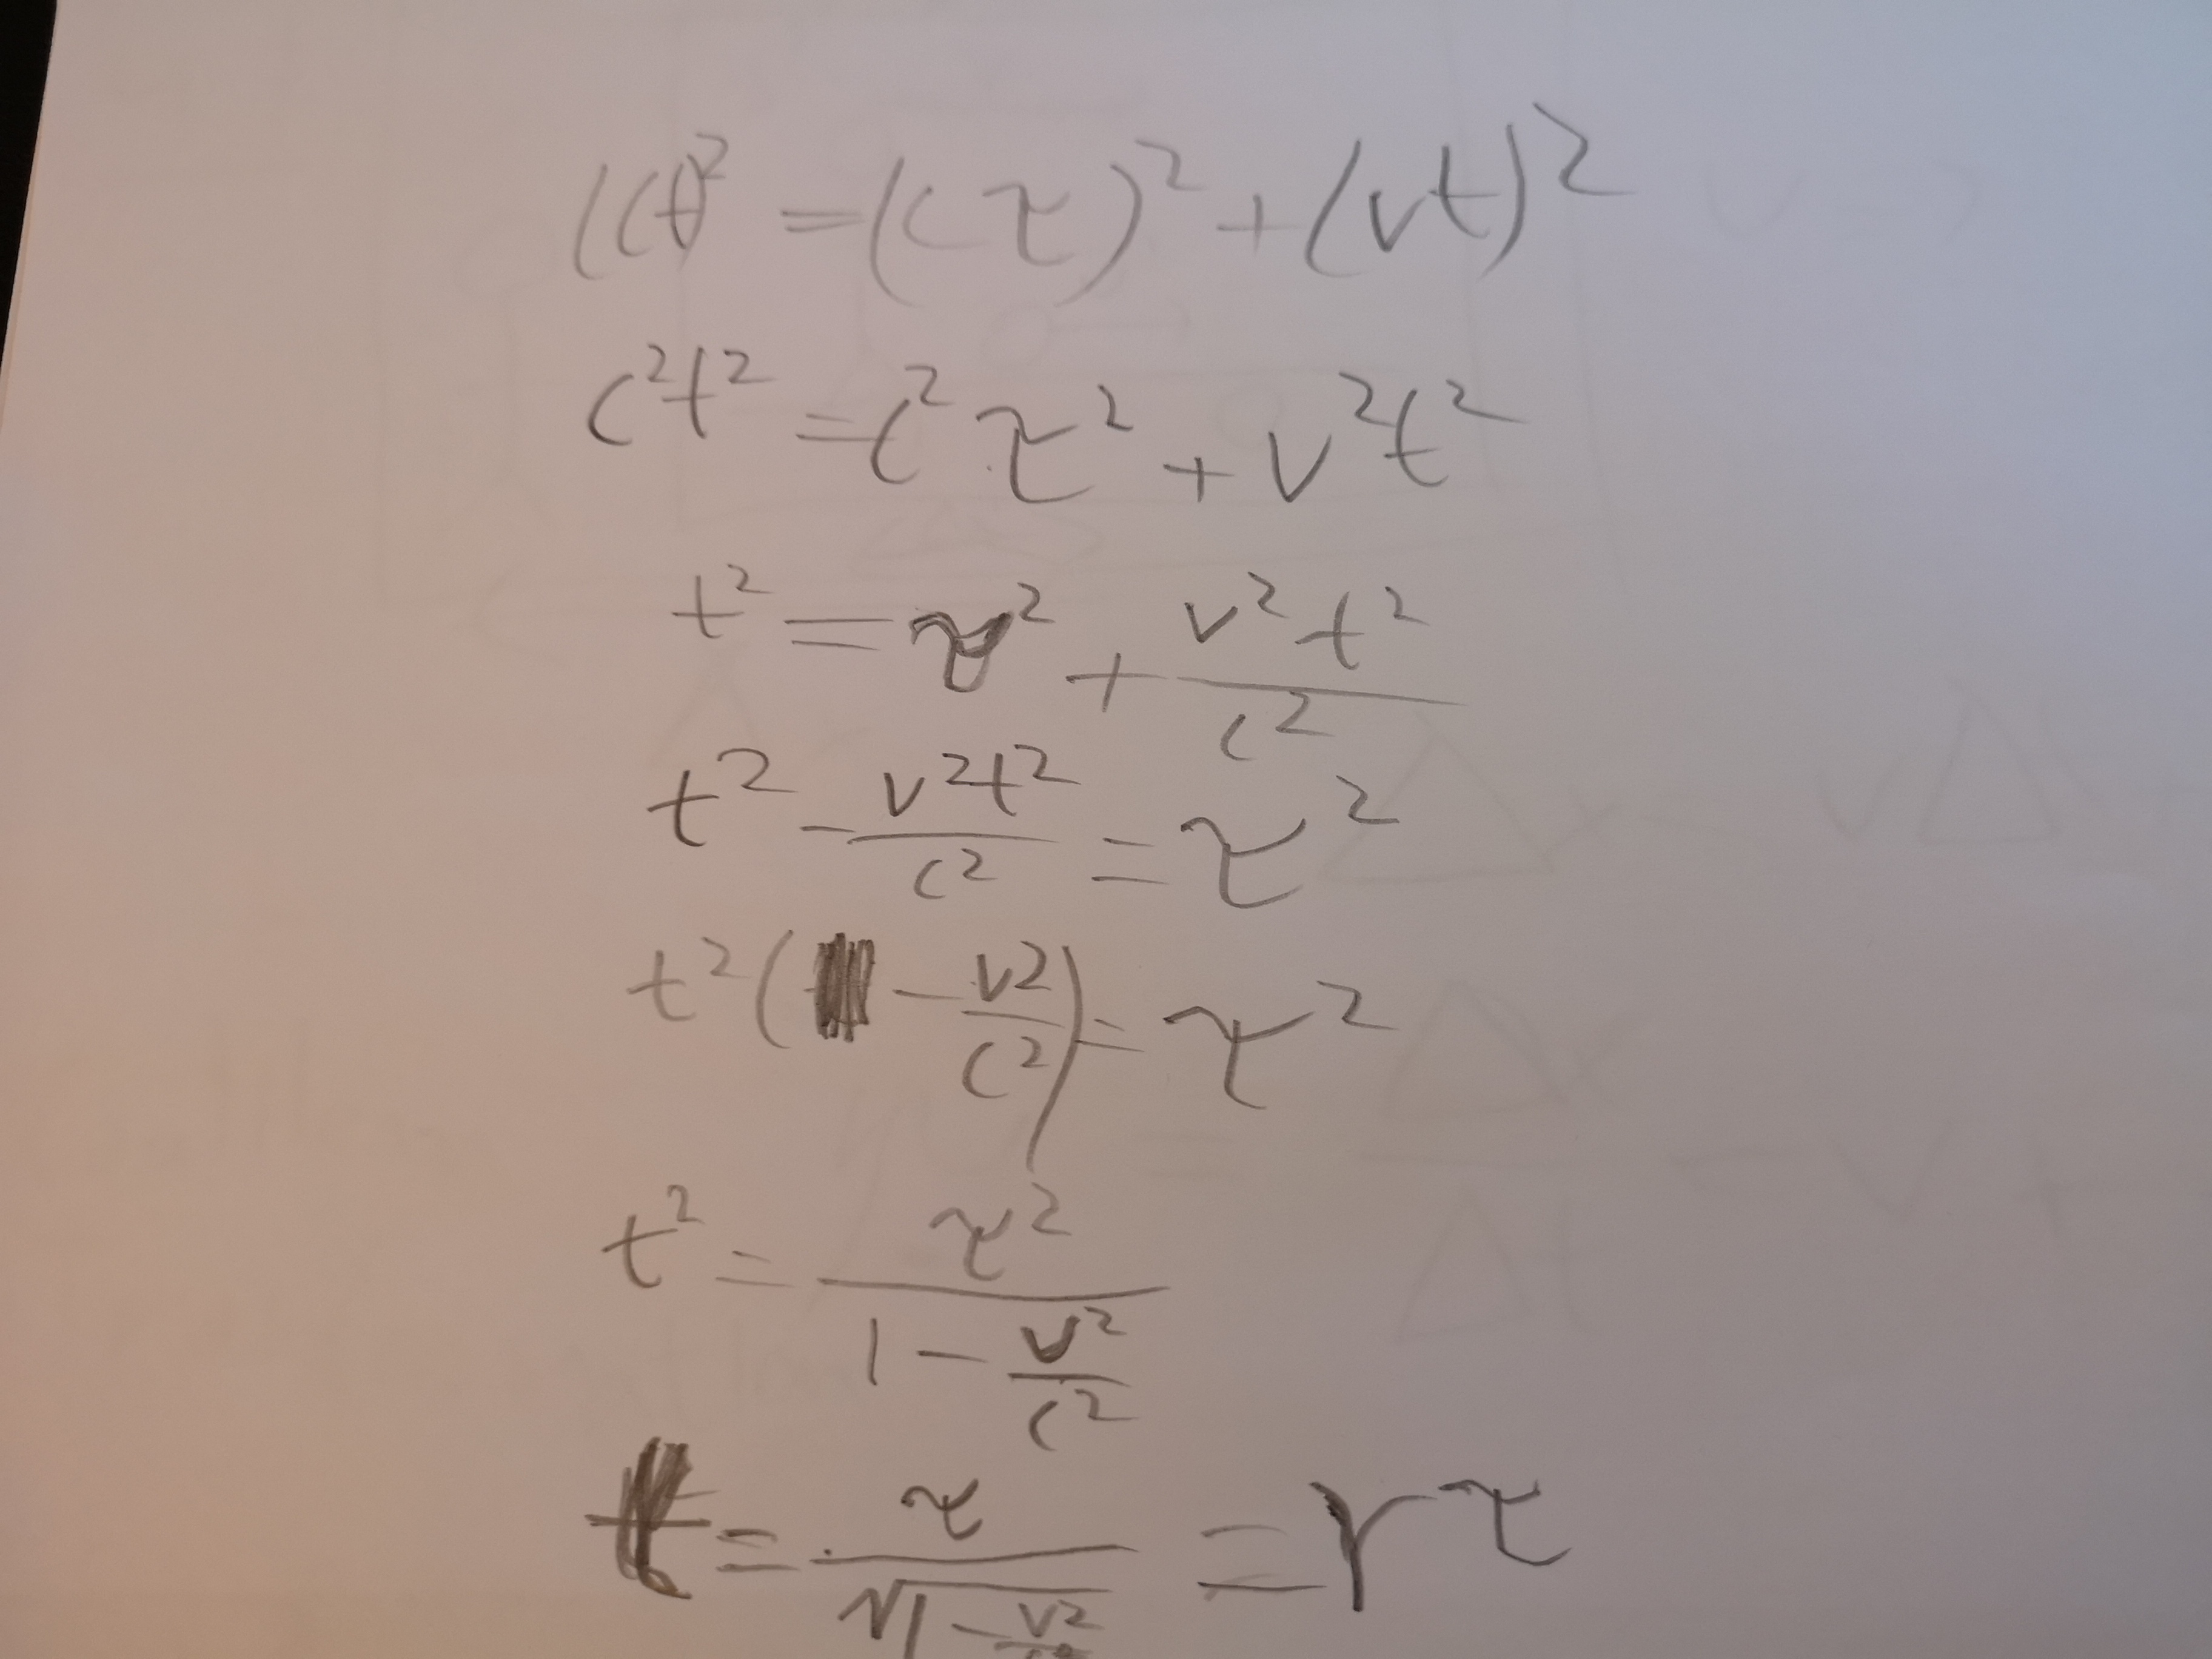 (ct)² = (cτ)² + (vt)²
c²t² = c²τ² + v²t²
t² = τ² + v²t²/c²
t² - v²t²/c² = τ²
t²( - v²/c²) = τ²
t² = τ²/(1 - v²/c²)
t = τ/√(1 - v²/c²) = γτ